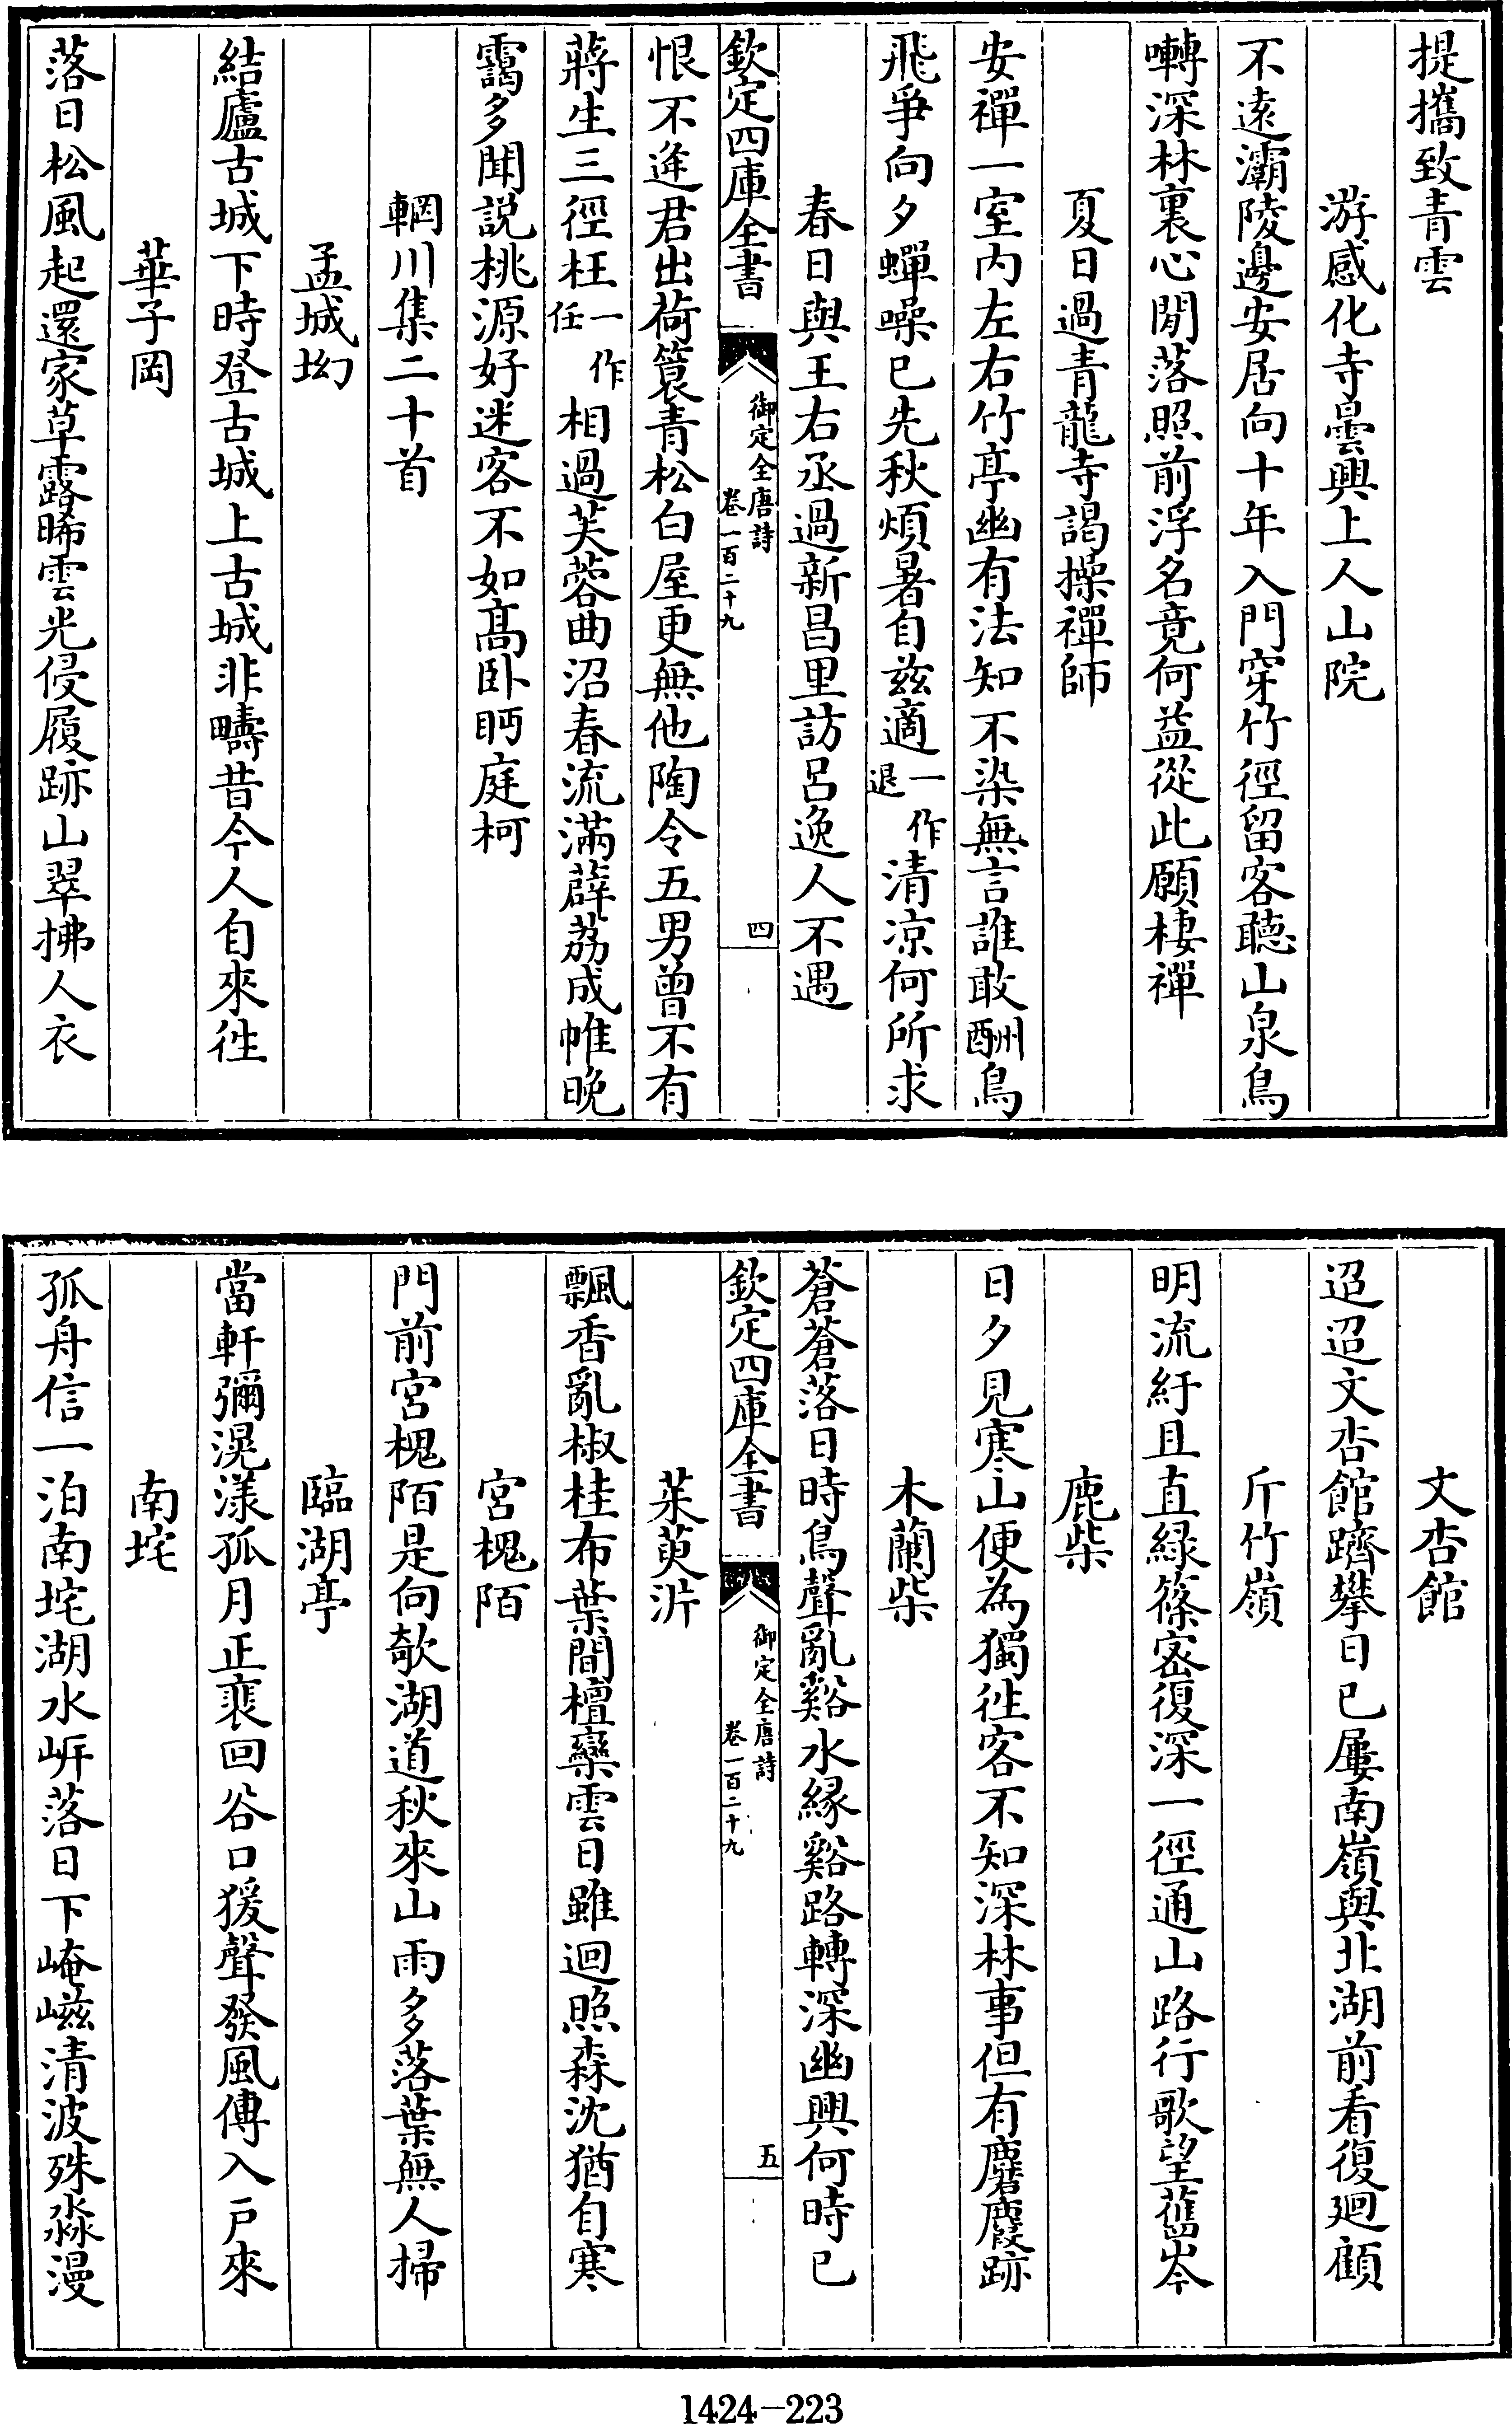 提攜致青雲
游感化寺曇興上人山院
不遠灞陵邊安居向十年入門穿竹徑留客聽山泉鳥
囀深林裏心閒落照前浮名竟何益從此願棲禪
夏日過青龍寺謁操禪師
安禪一室內左右竹亭幽有法知不染無言誰敢酬鳥
飛爭向夕蟬噪已先秋煩暑自兹適一作退清涼何所求
春日與王右丞過新昌里訪呂逸人不遇
欽定四庫全書 御定全唐詩 卷一百二十九 四
恨不逄君出荷簑青松白屋更無他陶令五男曾不有
蔣生三徑枉一作任相過芙蓉曲沼春流滿薜荔成帷晚
靄多聞説桃源好迷客不如髙卧眄庭柯
輞川集二十首
孟城坳
結廬古城下時登古城上古城非疇昔今人自來徃
華子岡
落日松風起還家草露晞雲光侵履跡山翠拂人衣
文杏館
迢迢文杏館躋攀日已屢南嶺與北湖前看復廻顧
斤竹嶺
明流紆且直緑篠宻復深一徑通山路行歌望舊岑
鹿柴
日夕見寒山便為獨徃客不知深林事但有麏麚跡
木蘭柴
蒼蒼落日時鳥聲亂谿水緣谿路轉深幽興何時已
欽定四庫全書 御定全唐詩 卷一百二十九 五
茱萸沜
飄香亂椒桂布葉間檀欒雲日雖迴照森沈猶自寒
宮槐陌
門前宮槐陌是向欹湖道秋來山雨多落葉無人掃
臨湖亭
當軒彌滉漾孤月正裵回谷口猨聲發風傳入戸來
南垞
孤舟信一泊南垞湖水㟁落日下崦嵫清波殊淼漫
1424-223